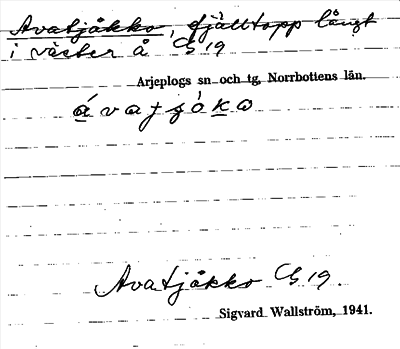 Avatjåkko, fjälltopp långt
i väster å G 19
Arjeplogs sn och tg, Norrbottens län.
Avatjåkko G 19.
Sigvard Wallström, 1941.